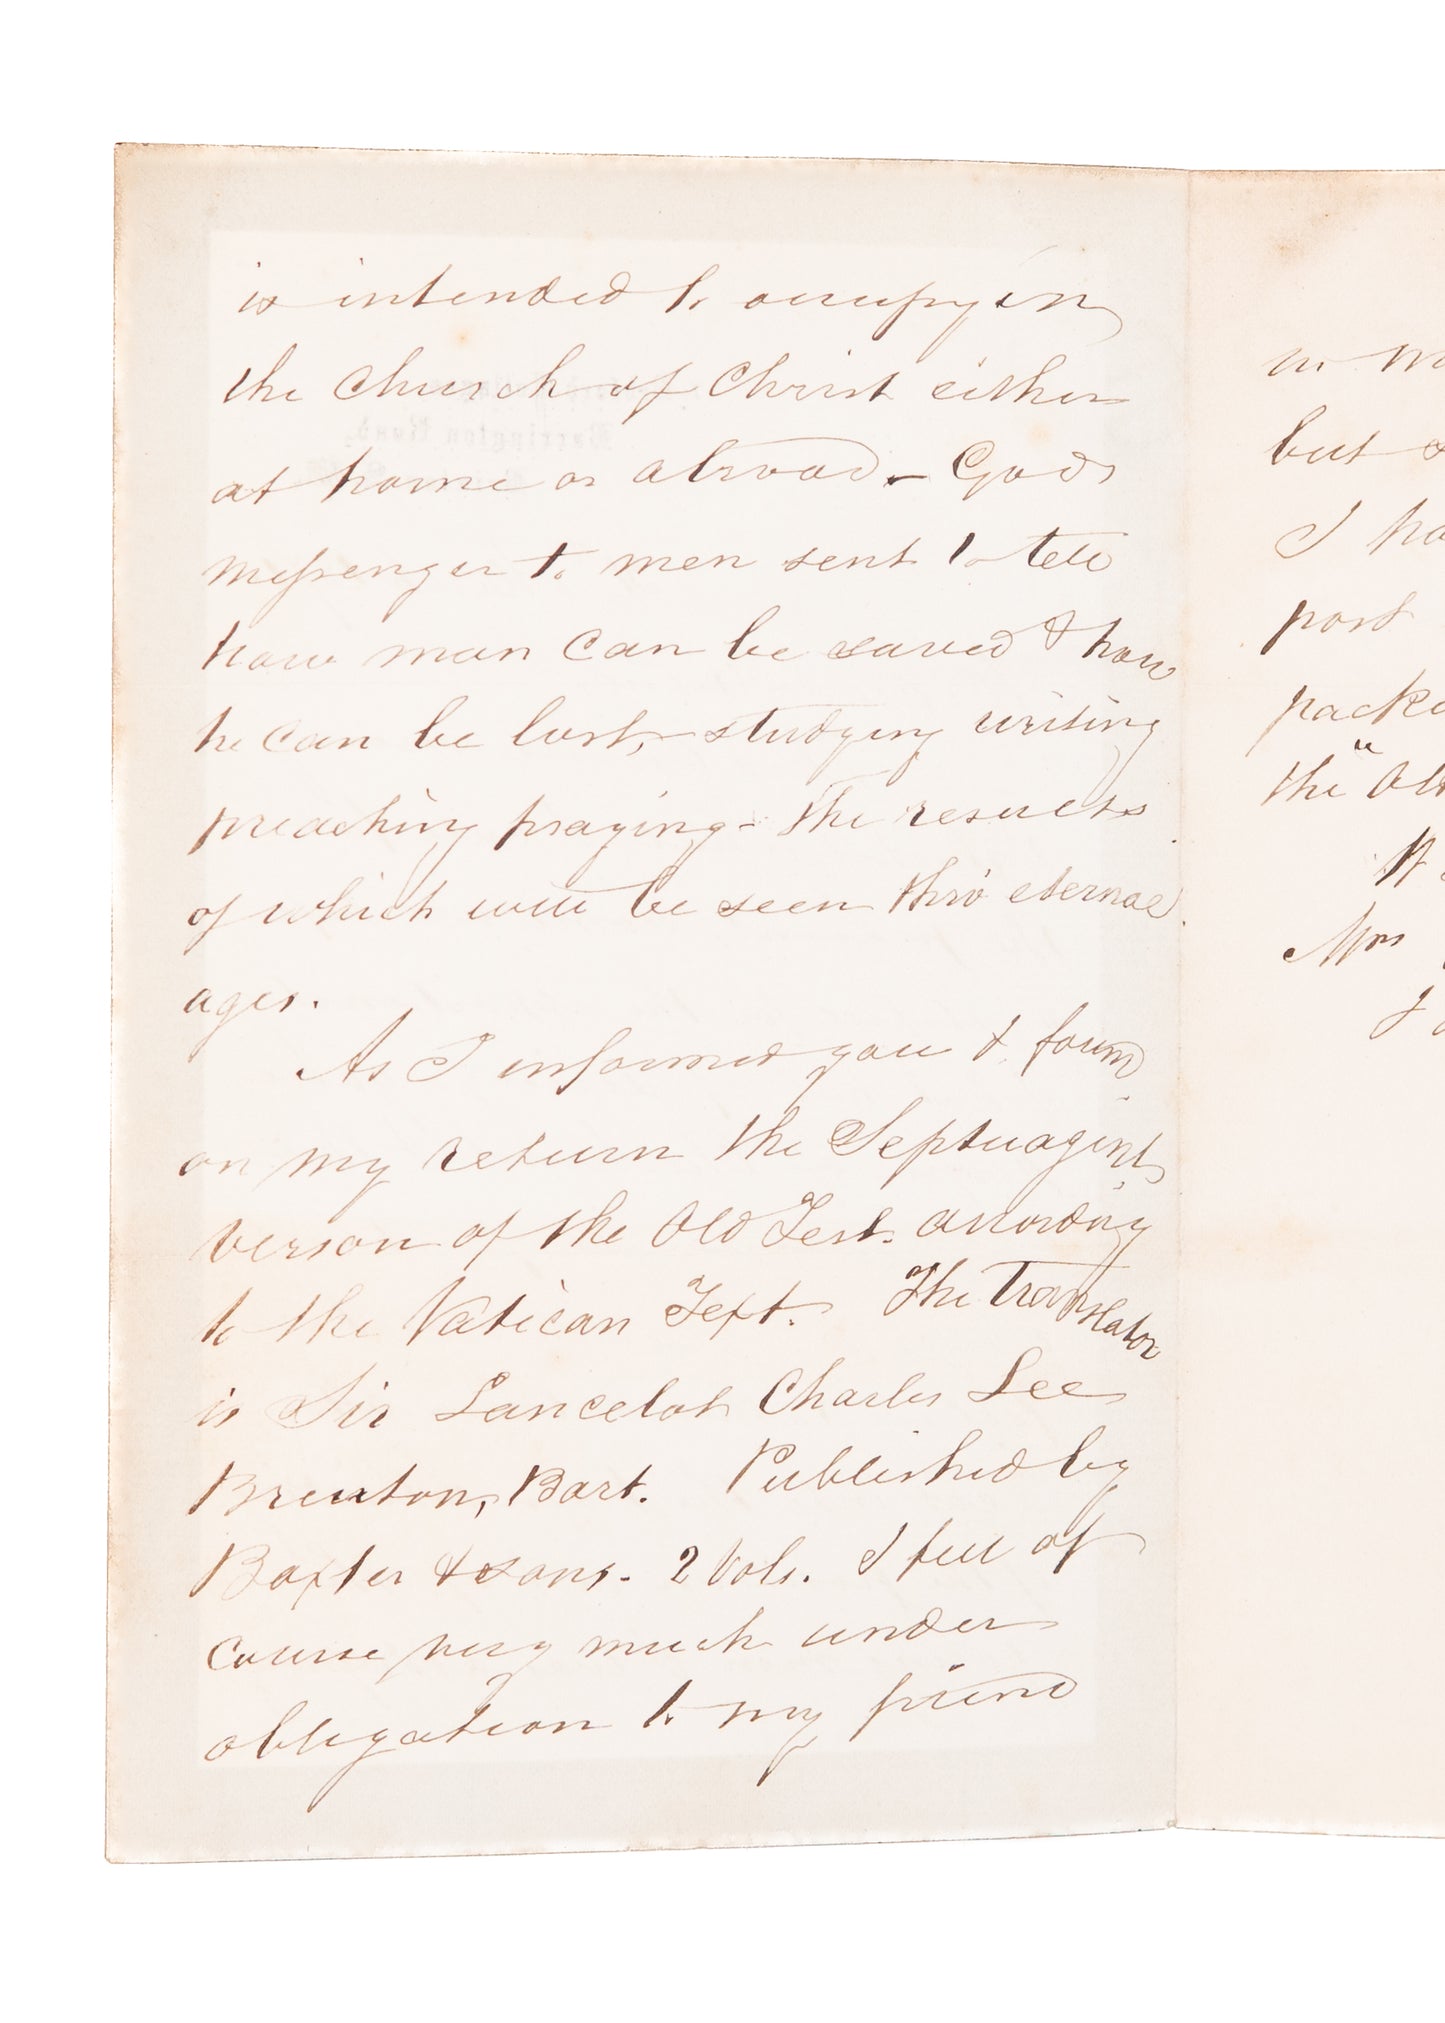 is intended to occupy in
the Church of Christ either
at home or abroad. - Gods
messenger to men sent to tell
how man can be saved & how
he can be lost, - studying writing
preaching praying - the results
of which will be seen thro' eternal
ages.
As I informed you I found
on my return the Septuagint
version of the Old Test. according
to the Vatican Text. The Translator
is Sir Lancelot Charles Lee
Brenton, Bart. Published by
Baxter & Sons. 2 Vols. I feel of
course very much under
obligation to my friend
but
I
post
the "
Mrs